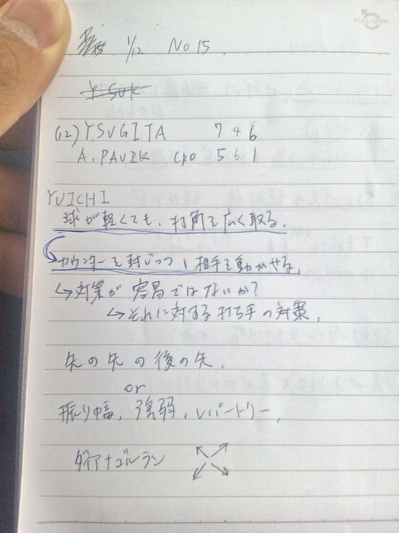 1/12 No 15.
Y SUK
(12) Y SUGITA 7 4 6
A. PAVIK CRO 5 6 1
YUICHI
球が軽くても、打角を広く取る。
カウンターを封じつつ、相手を動かせる。
↳対策が容易ではないか?
↳それに対する打ち手の対策。
先の先の後の先.
or
振り幅, 強弱, レパートリー,
ダイアナゴルラン